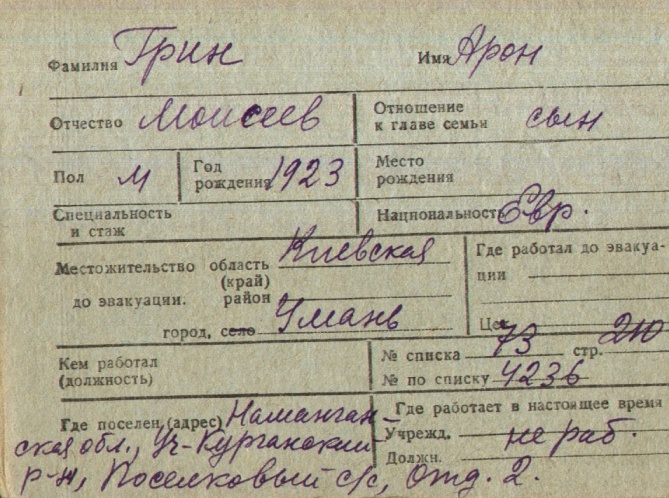 Фамилия Грин Имя Арон
Отчество Моисеев Отношение к главе семьи сын
Пол м Год рождения 1923 Место рождения
Специальность и стаж Национальность Евр.
Местожительство до эвакуации. область (край) Киевская
район
город, село Умань
Где работал до эвакуации
Цех
Кем работал (должность)
№ списка 73 стр. 210
№ по списку 4236
Где поселен (адрес) Наманган-
ская обл., Уч-Курганский
р-н, Поселковый с/с, отд. 2.
Где работает в настоящее время
Учрежд. не раб.
Должн.